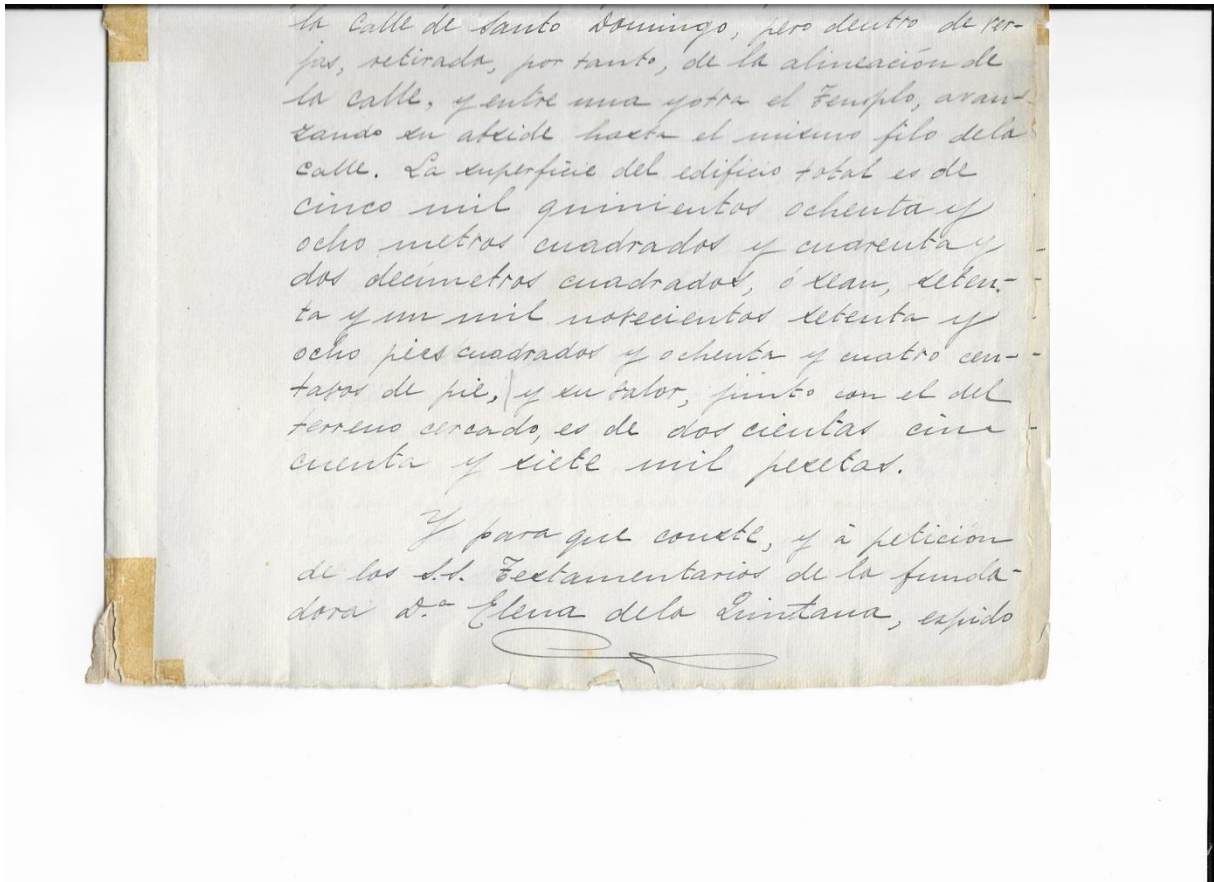 la calle de Santo Domingo, pero dentro de ver-
jas, retirada, por tanto, de la alineación de
la calle, y entre una y otra el Templo, avan-
zando su abside hasta el mismo filo de la
calle. La superficie del edificio total es de
cinco mil quinientos ochenta y
ocho metros cuadrados y cuarenta y
dos decímetros cuadrados, ó sean, seten-
ta y un mil novecientos setenta y
ocho pies cuadrados y ochenta y cuatro cen-
tavos de pie, y su valor, junto con el del
terreno cercado, es de dos cientas cin-
cuenta y siete mil pesetas.
Y para que conste, y à petición
de los S.S. Testamentarios de la funda-
dora D.ª Elena de la Quintana, expido